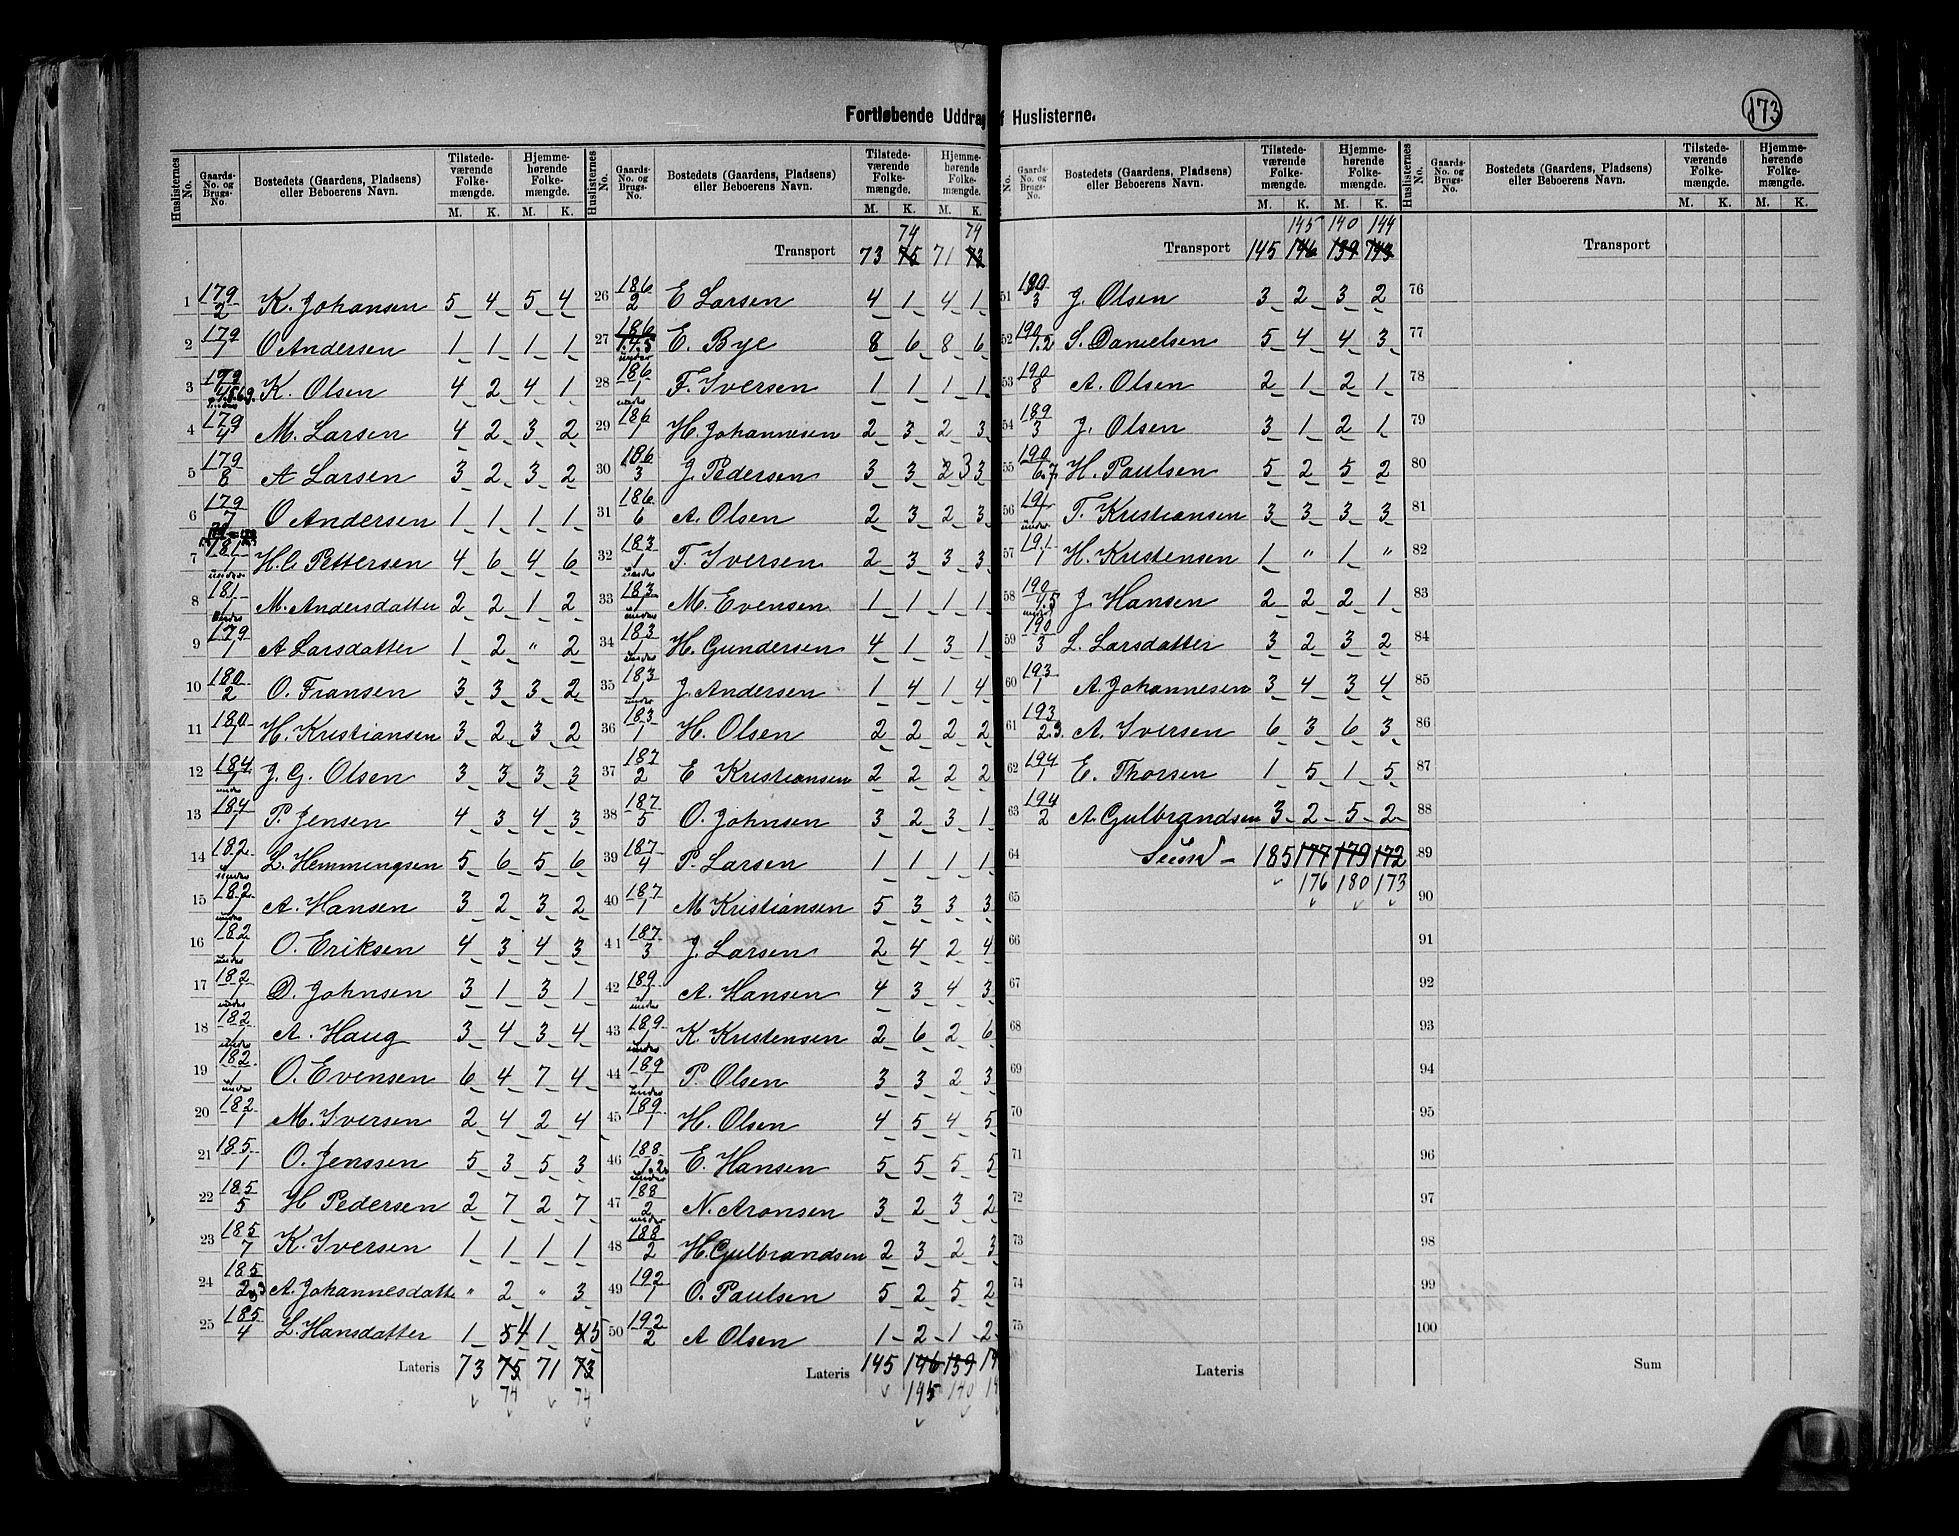 Fortløbende Uddrag f Huslisterne.
173
Huslisternes No. Gaards-No. og Brugs-No. Bostedets (Gaardens, Pladsens) eller Beboerens Navn. Tilstedeværende Folkemængde. M. K. Hjemmehørende Folkemængde. M. K.
1 179/2 K. Johansen 5 4 5 4
2 179/1 O Andersen 1 1 1 1
3 179 K. Olsen 4 2 4 1
4 under 179/4 M. Larsen 4 2 3 2
5 179/8 A Larsen 3 2 3 2
6 179/7 O Andersen 1 1 1 1
7 181/1 H. C Pettersen 4 6 4 6
8 under 181/1 M. Andersdatter 2 2 1 2
9 under 179/1 A Larsdatter 1 2 " 2
10 180/2 O. Fransen 3 3 3 2
11 180/1 H. Kristiansen 3 2 3 2
12 184/1 J. G. Olsen 3 3 3 3
13 under 184/1 P. Jensen 4 3 4 3
14 182/1 L. Hemmingsen 5 6 5 6
15 under 182/1 A. Hansen 3 2 3 2
16 under 182/1 O. Eriksen 4 3 4 3
17 under 182/1 D. Johnsen 3 1 3 1
18 under 182/1 A. Haug 3 4 3 4
19 under 182/1 O. Evensen 6 4 7 4
20 under 182/1 M. Iversen 2 4 2 4
21 185/1 O. Jenssen 5 3 5 3
22 185/5 H Pedersen 2 7 2 7
23 185/7 K. Iversen 1 1 1 1
24 185/2 A. Johannesdatte " 2 " 3
25 185/4 L. Hansdatter 1 5 4 1 4 5
Lateris 73 75 71 73
74 74
Huslisternes No. Gaards-No. og Brugs-No. Bostedets (Gaardens, Pladsens) eller Beboerens Navn. Tilstedeværende Folkemængde. M. K. Hjemmehørende Folkemængde. M. K.
74 74
Transport 73 75 71 73
26 186/2 E Larsen 4 1 4 1
27 186/1.4.5 E. Bye 8 6 8 6
28 under 186/1 F. Iversen 1 1 1 1
29 under 186/1 H. Johannesen 2 3 2 3
30 186/3 J. Pedersen 3 3 2 3 3
31 186/6 A. Olsen 2 3 2 3
32 183/1 T. Iversen 2 3 3 3
33 under 183/1 M. Evensen 1 1 1 1
34 under 183/1 H. Gundersen 4 1 3 1
35 under 183/1 J. Andersen 1 4 1 4
36 under 183/1 H. Olsen 2 2 2 2
37 187/2 E Kristiansen 2 2 2 2
38 187/5 O. Johnsen 3 2 3 1
39 187/4 P. Larsen 1 1 1 1
40 187/1 M Kristiansen 5 3 3 3
41 187/3 J. Larsen 2 4 2 4
42 189/1 A. Hansen 4 3 4 3
43 under 189/1 K. Kristensen 2 6 2 6
44 under 189/1 P. Olsen 3 3 2 3
45 under 189/1 H. Olsen 4 5 4 5
46 188/1.2 E. Hansen 5 5 5 5
47 under 188/2 N. Aronsen 3 2 3 2
48 under 188/2 H. Gulbrandsen 2 3 2 3
49 192/1 O. Paulsen 5 2 5 2
50 192/2 A Olsen 1 2 1 2
Lateris 145 146 139 14
145 140 14
No. Gaards-No. og Brugs-No. Bostedets (Gaardens, Pladsens) eller Beboerens Navn. Tilstedeværende Folkemængde. M. K. Hjemmehørende Folkemængde. M. K.
145 140 144
Transport 145 146 139 143
51 190/3 J. Olsen 3 2 3 2
52 190/1.2 S. Danielsen 5 4 4 3
53 190/8 A. Olsen 2 1 2 1
54 189/3 J. Olsen 3 1 2 1
55 190/6.7. H. Paulsen 5 2 5 2
56 191/1 T. Kristiansen 3 3 3 3
57 under 191/1 H. Kristensen 1 " 1 "
58 190/4.5 J. Hansen 2 2 2 1
59 under 190/3 L. Larsdatter 3 2 3 2
60 193/1 A. Johannesen 3 4 3 4
61 193/2.3 A. Iversen 6 3 6 3
62 194/1 E. Thorsen 1 5 1 5
63 194/2 A. Gulbrandsen 3 2 5 2
64 185 177 179 172
65 176 180 173
66
67
68
69
70
71
72
73
74
75
Lateris
Huslisternes No. Gaards-No. og Brugs-No. Bostedets (Gaardens, Pladsens) eller Beboerens Navn. Tilstedeværende Folkemængde. M. K. Hjemmehørende Folkemængde. M. K.
Transport
76
77
78
79
80
81
82
83
84
85
86
87
88
89
90
91
92
93
94
95
96
97
98
99
100
Sum